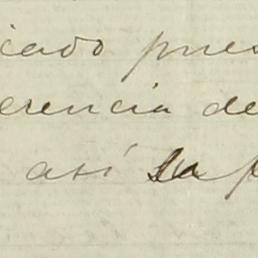 icado pues
erencia de
así la p